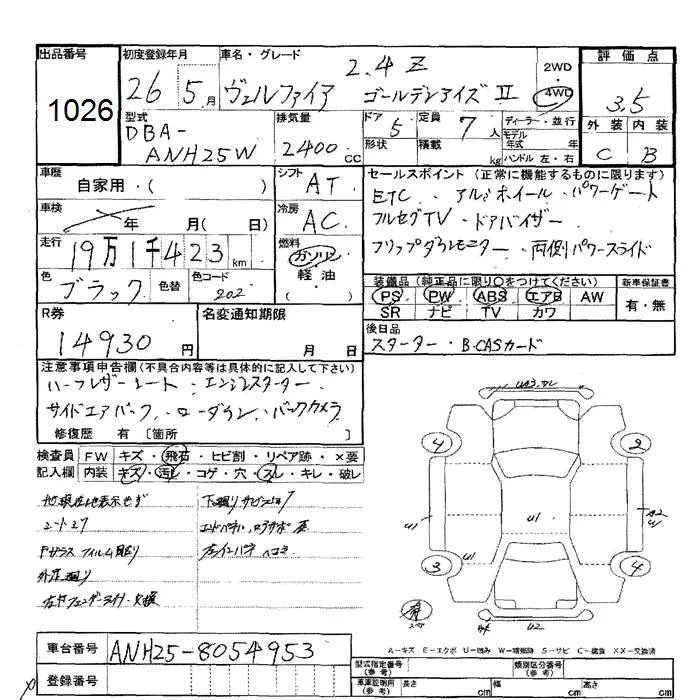 出品番号 初度登録年月 車名・グレード 評価点
1026 26 5月 ヴェルファイア 2.4Z ゴールデンアイズⅡ 2WD・4WD 3.5
型式 排気量 ドア 定員 ディーラー・並行 外装 内装
DBA-ANH25W 2400CC 5 7人 モデル年式 年 C B
形状 積載 kg ハンドル 左・右
車歴 シフト セールスポイント(正常に機能するものに限ります)
自家用・( ) AT ETC・アルミホイール・パワーゲート
車検 年 月( 日) 冷房 AC フルセグTV・ドアバイザー
走行 19万1千423km 燃料 ガソリン・軽油・( ) フリップダウンモニター・両側パワースライド
色 ブラック 色替 色コード 202
装備品(純正品に限り○をつけてください) 新車保証書
PS PW ABS エアB AW 有・無
SR ナビ TV カワ
R券 名変通知期限 後日品
14930円 月 日 スターター・B-CASカード
注意事項申告欄(不具合内容等は具体的に記入して下さい)
ハーフレザーシート・エンジンスターター・
サイドエアバック・ローダウン・バックカメラ
修復歴 有 〔箇所
検査員 FW キズ・飛石・ヒビ割・リペア跡・×要
記入欄 内装 キズ・汚レ・コゲ・穴・スレ・キレ・破レ
下廻りサビ
4 2
U1 U1 U1
3 4
U2
A-キズ E-エクボ U-凹み W-補修跡 S-サビ C-腐食 XX-交換済
車台番号 ANH25-8054953
登録番号
型式指定番号(参考) 類別区分番号(参考)
車庫証明用(参考) 長さ cm 幅 cm 高さ cm